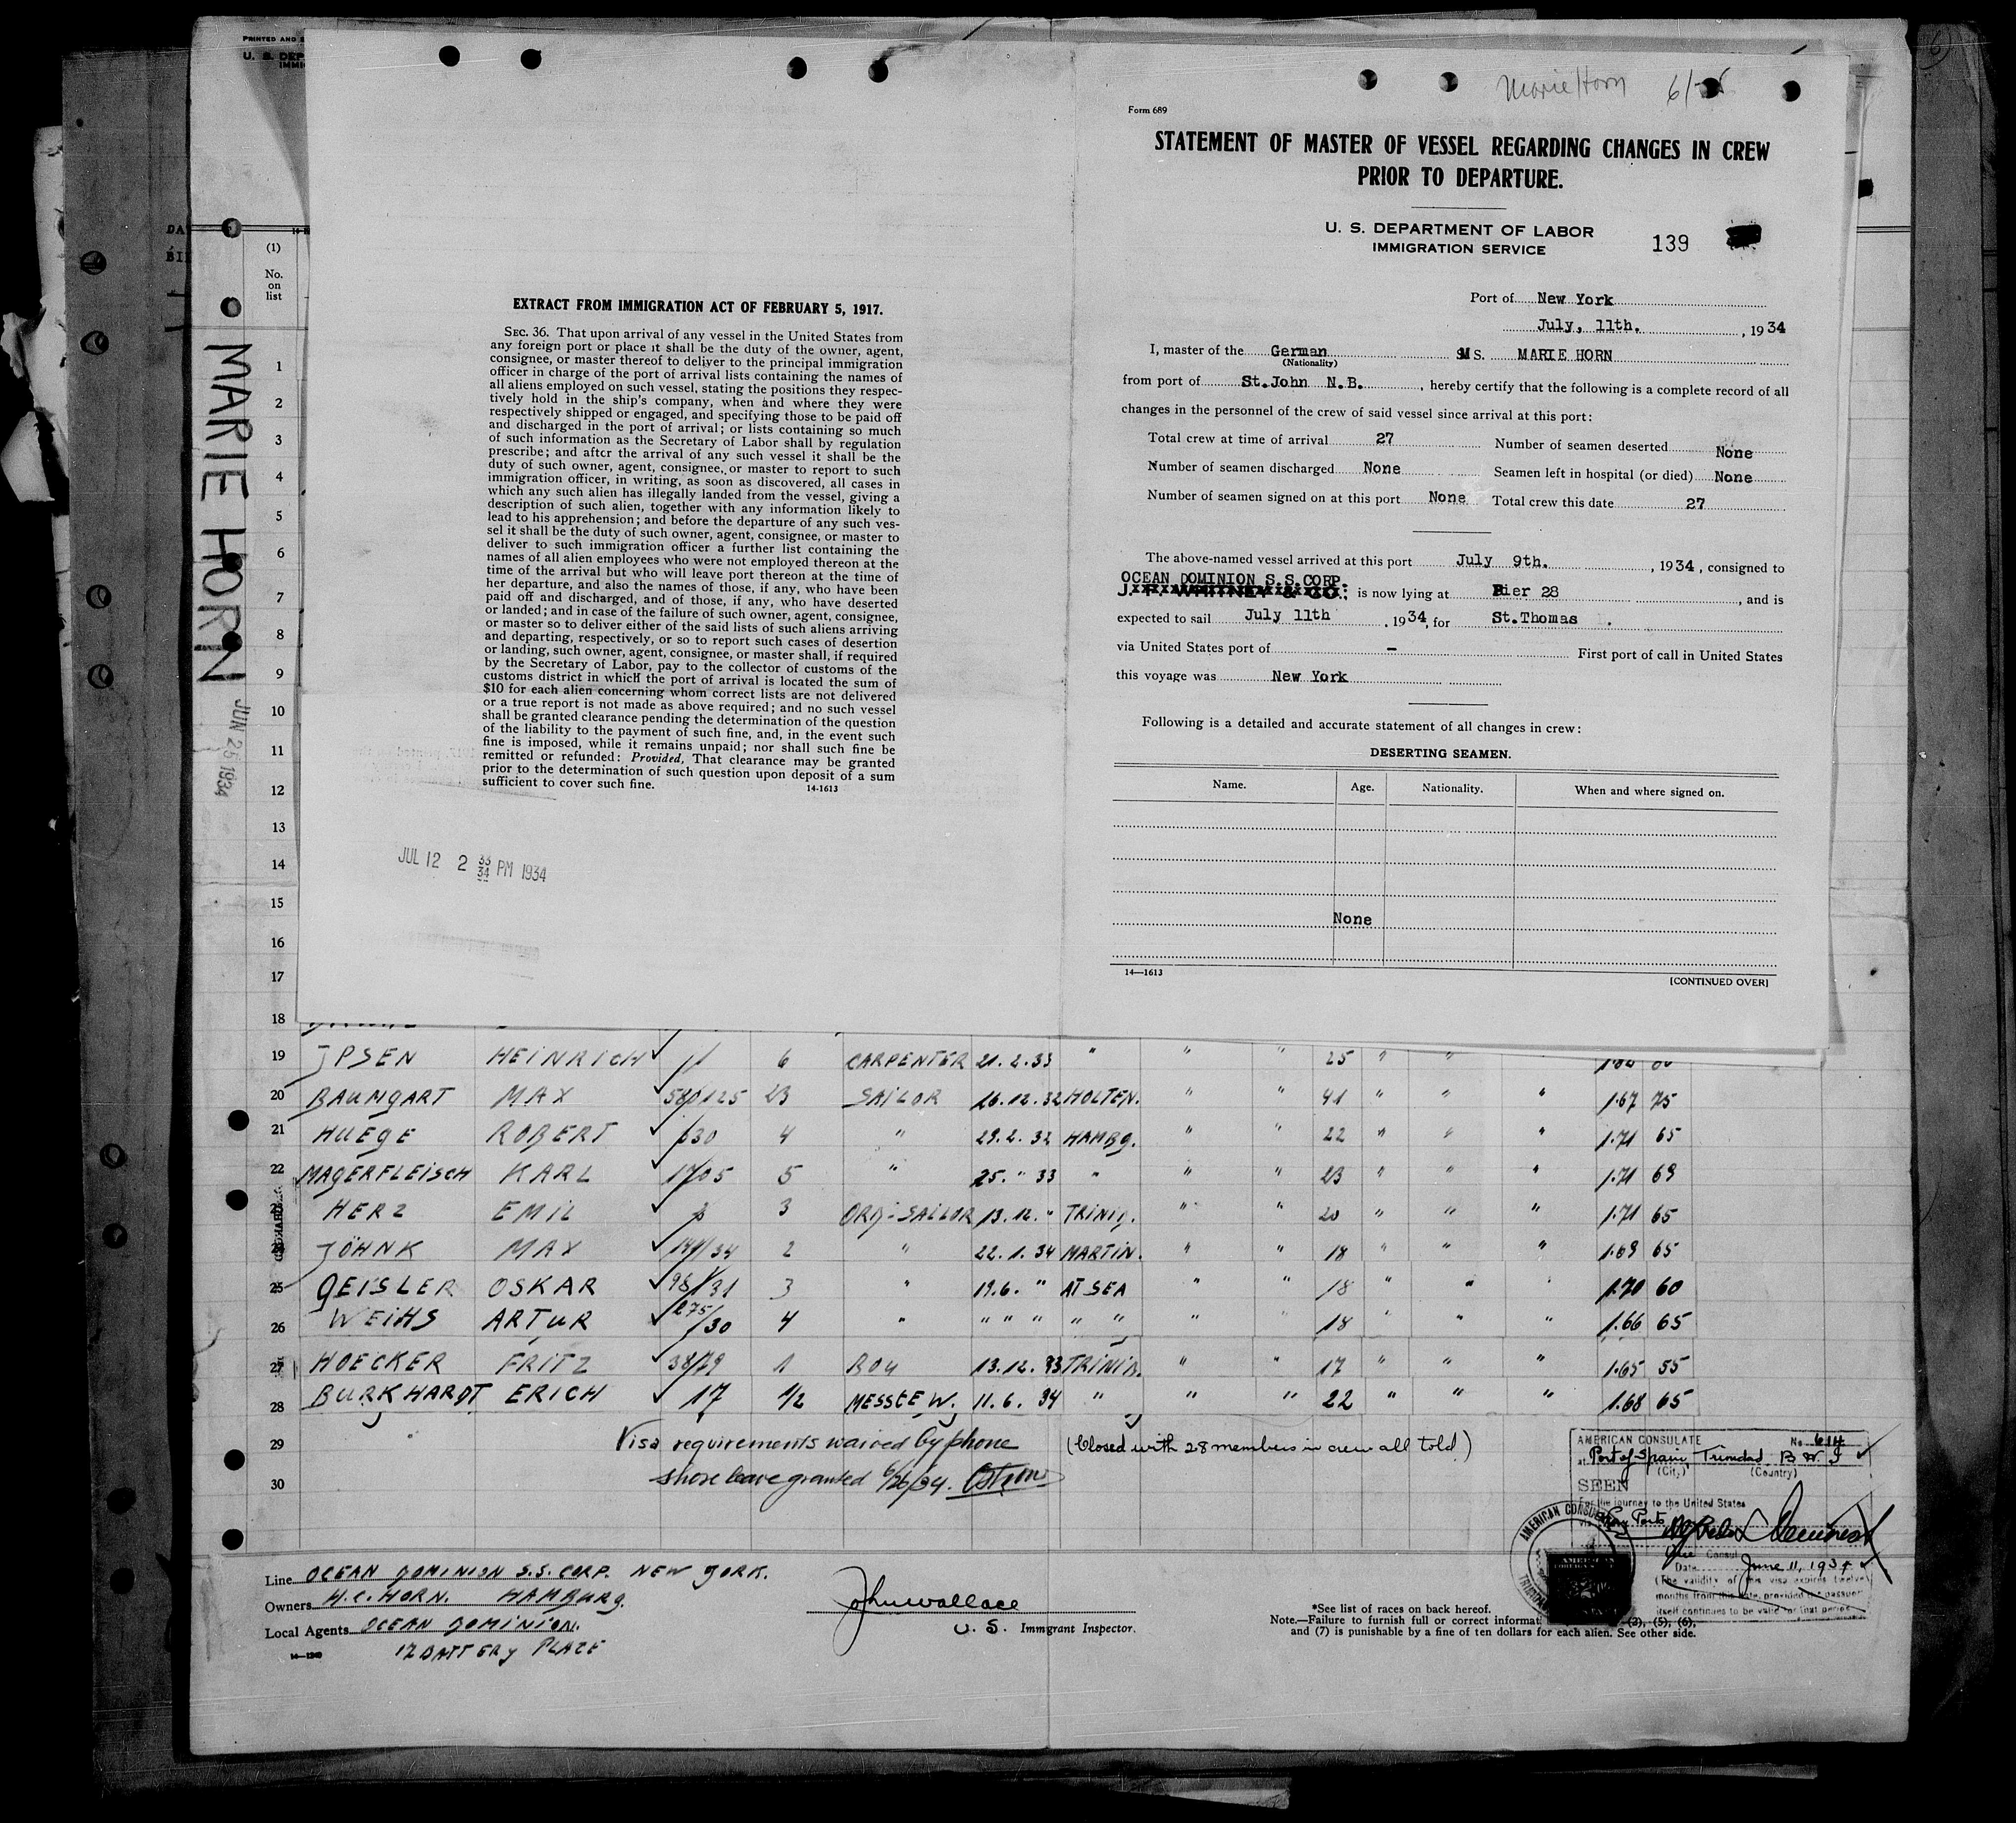 PRINTED AND S
U. S. DEP
IMMI
(1)
No.
on
list
MARIE HORN
JUN 25 1934
EXTRACT FROM IMMIGRATION ACT OF FEBRUARY 5, 1917.
SEC. 36. That upon arrival of any vessel in the United States from
any foreign port or place it shall be the duty of the owner, agent,
consignee, or master thereof to deliver to the principal immigration
officer in charge of the port of arrival lists containing the names of
all aliens employed on such vessel, stating the positions they respec-
tively hold in the ship's company, when and where they were
respectively shipped or engaged, and specifying those to be paid off
and discharged in the port of arrival; or lists containing so much
of such information as the Secretary of Labor shall by regulation
prescribe; and after the arrival of any such vessel it shall be the
duty of such owner, agent, consignee, or master to report to such
immigration officer, in writing, as soon as discovered, all cases in
which any such alien has illegally landed from the vessel, giving a
description of such alien, together with any information likely to
lead to his apprehension; and before the departure of any such ves-
sel it shall be the duty of such owner, agent, consignee, or master to
deliver to such immigration officer a further list containing the
names of all alien employees who were not employed thereon at the
time of the arrival but who will leave port thereon at the time of
her departure, and also the names of those, if any, who have been
paid off and discharged, and of those, if any, who have deserted
or landed; and in case of the failure of such owner, agent, consignee,
or master so to deliver either of the said lists of such aliens arriving
and departing, respectively, or so to report such cases of desertion
or landing, such owner, agent, consignee, or master shall, if required
by the Secretary of Labor, pay to the collector of customs of the
customs district in which the port of arrival is located the sum of
$10 for each alien concerning whom correct lists are not delivered
or a true report is not made as above required; and no such vessel
shall be granted clearance pending the determination of the question
of the liability to the payment of such fine, and, in the event such
fine is imposed, while it remains unpaid; nor shall such fine be
remitted or refunded: Provided, That clearance may be granted
prior to the determination of such question upon deposit of a sum
sufficient to cover such fine. 14-1613
JUL 12 2 33 34 PM 1934
Marie Horn
Form 689
STATEMENT OF MASTER OF VESSEL REGARDING CHANGES IN CREW
PRIOR TO DEPARTURE.
U. S. DEPARTMENT OF LABOR
IMMIGRATION SERVICE 139
Port of New York
July, 11th. , 1934
I, master of the German MS. MARIE HORN
(Nationality)
from port of St.John N.B. , hereby certify that the following is a complete record of all
changes in the personnel of the crew of said vessel since arrival at this port:
Total crew at time of arrival 27 Number of seamen deserted None
Number of seamen discharged None Seamen left in hospital (or died) None
Number of seamen signed on at this port None Total crew this date 27
The above-named vessel arrived at this port July 9th. , 1934, consigned to
OCEAN DOMINION S.S.CORP.
J. F. WHITNEY & CO. is now lying at Pier 28 , and is
expected to sail July 11th , 1934, for St.Thomas .
via United States port of - First port of call in United States
this voyage was New York
Following is a detailed and accurate statement of all changes in crew:
DESERTING SEAMEN.
Name. Age. Nationality. When and where signed on.
None
14—1613 [CONTINUED OVER]
1
2
3
4
5
6
7
8
9
10
11
12
13
14
15
16
17
18
19 JPSEN HEINRICH 6 CARPENTER 21.2.33 " " " 25 " "
20 BAUMGART MAX 23 SAILOR 16.12.32 HOLTEN. " " 41 " " " 1.67 75
21 HUEGE ROBERT 4 " 29.2.32 HAMBG. " " 22 " " " 1.71 65
22 MAGERFLEISCH KARL 5 " 25. " 33 " " " 23 " " " 1.71 69
23 HERZ EMIL 3 ORD-SAILOR 13.12. " TRINID. " " 20 " " " 1.71 65
24 JÖHNK MAX 2 " 22.1.34 MARTIN. " " 18 " " " 1.69 65
25 GEISLER OSKAR 98/31 3 " 19.6. " AT SEA " " 18 " " " 1.70 60
26 WEIHS ARTUR 275/30 4 " " " " " " " " 18 " " " 1.66 65
27 HOECKER FRITZ 38/29 1 BOY 13.12.33 TRINID. " " 17 " " " 1.65 55
28 BURKHARDT ERICH 17 1/2 MESSTEW. 11.6.34 " " " 22 " " " 1.68 65
29 Visa requirements waived by phone (Closed with 28 members in crew all told)
30 shore leave granted 6/26/34.
AMERICAN CONSULATE No. 614
at Port of Spain, Trinidad B.W.I
(City) (Country)
SEEN
For the journey to the United States
Consul
Date June 11, 1934
(The validity of this visa expires twelve
months from this date, provided the passport
itself continues to be valid for that period.
AMERICAN CONSULATE
Line OCEAN DOMINION S.S. CORP. NEW YORK.
Owners H.C. HORN. HAMBURG.
Local Agents OCEAN DOMINION.
12 BATTERY PLACE
John Wallace
U. S. Immigrant Inspector.
*See list of races on back hereof.
Note.—Failure to furnish full or correct informat (3), (5), (6),
and (7) is punishable by a fine of ten dollars for each alien. See other side.